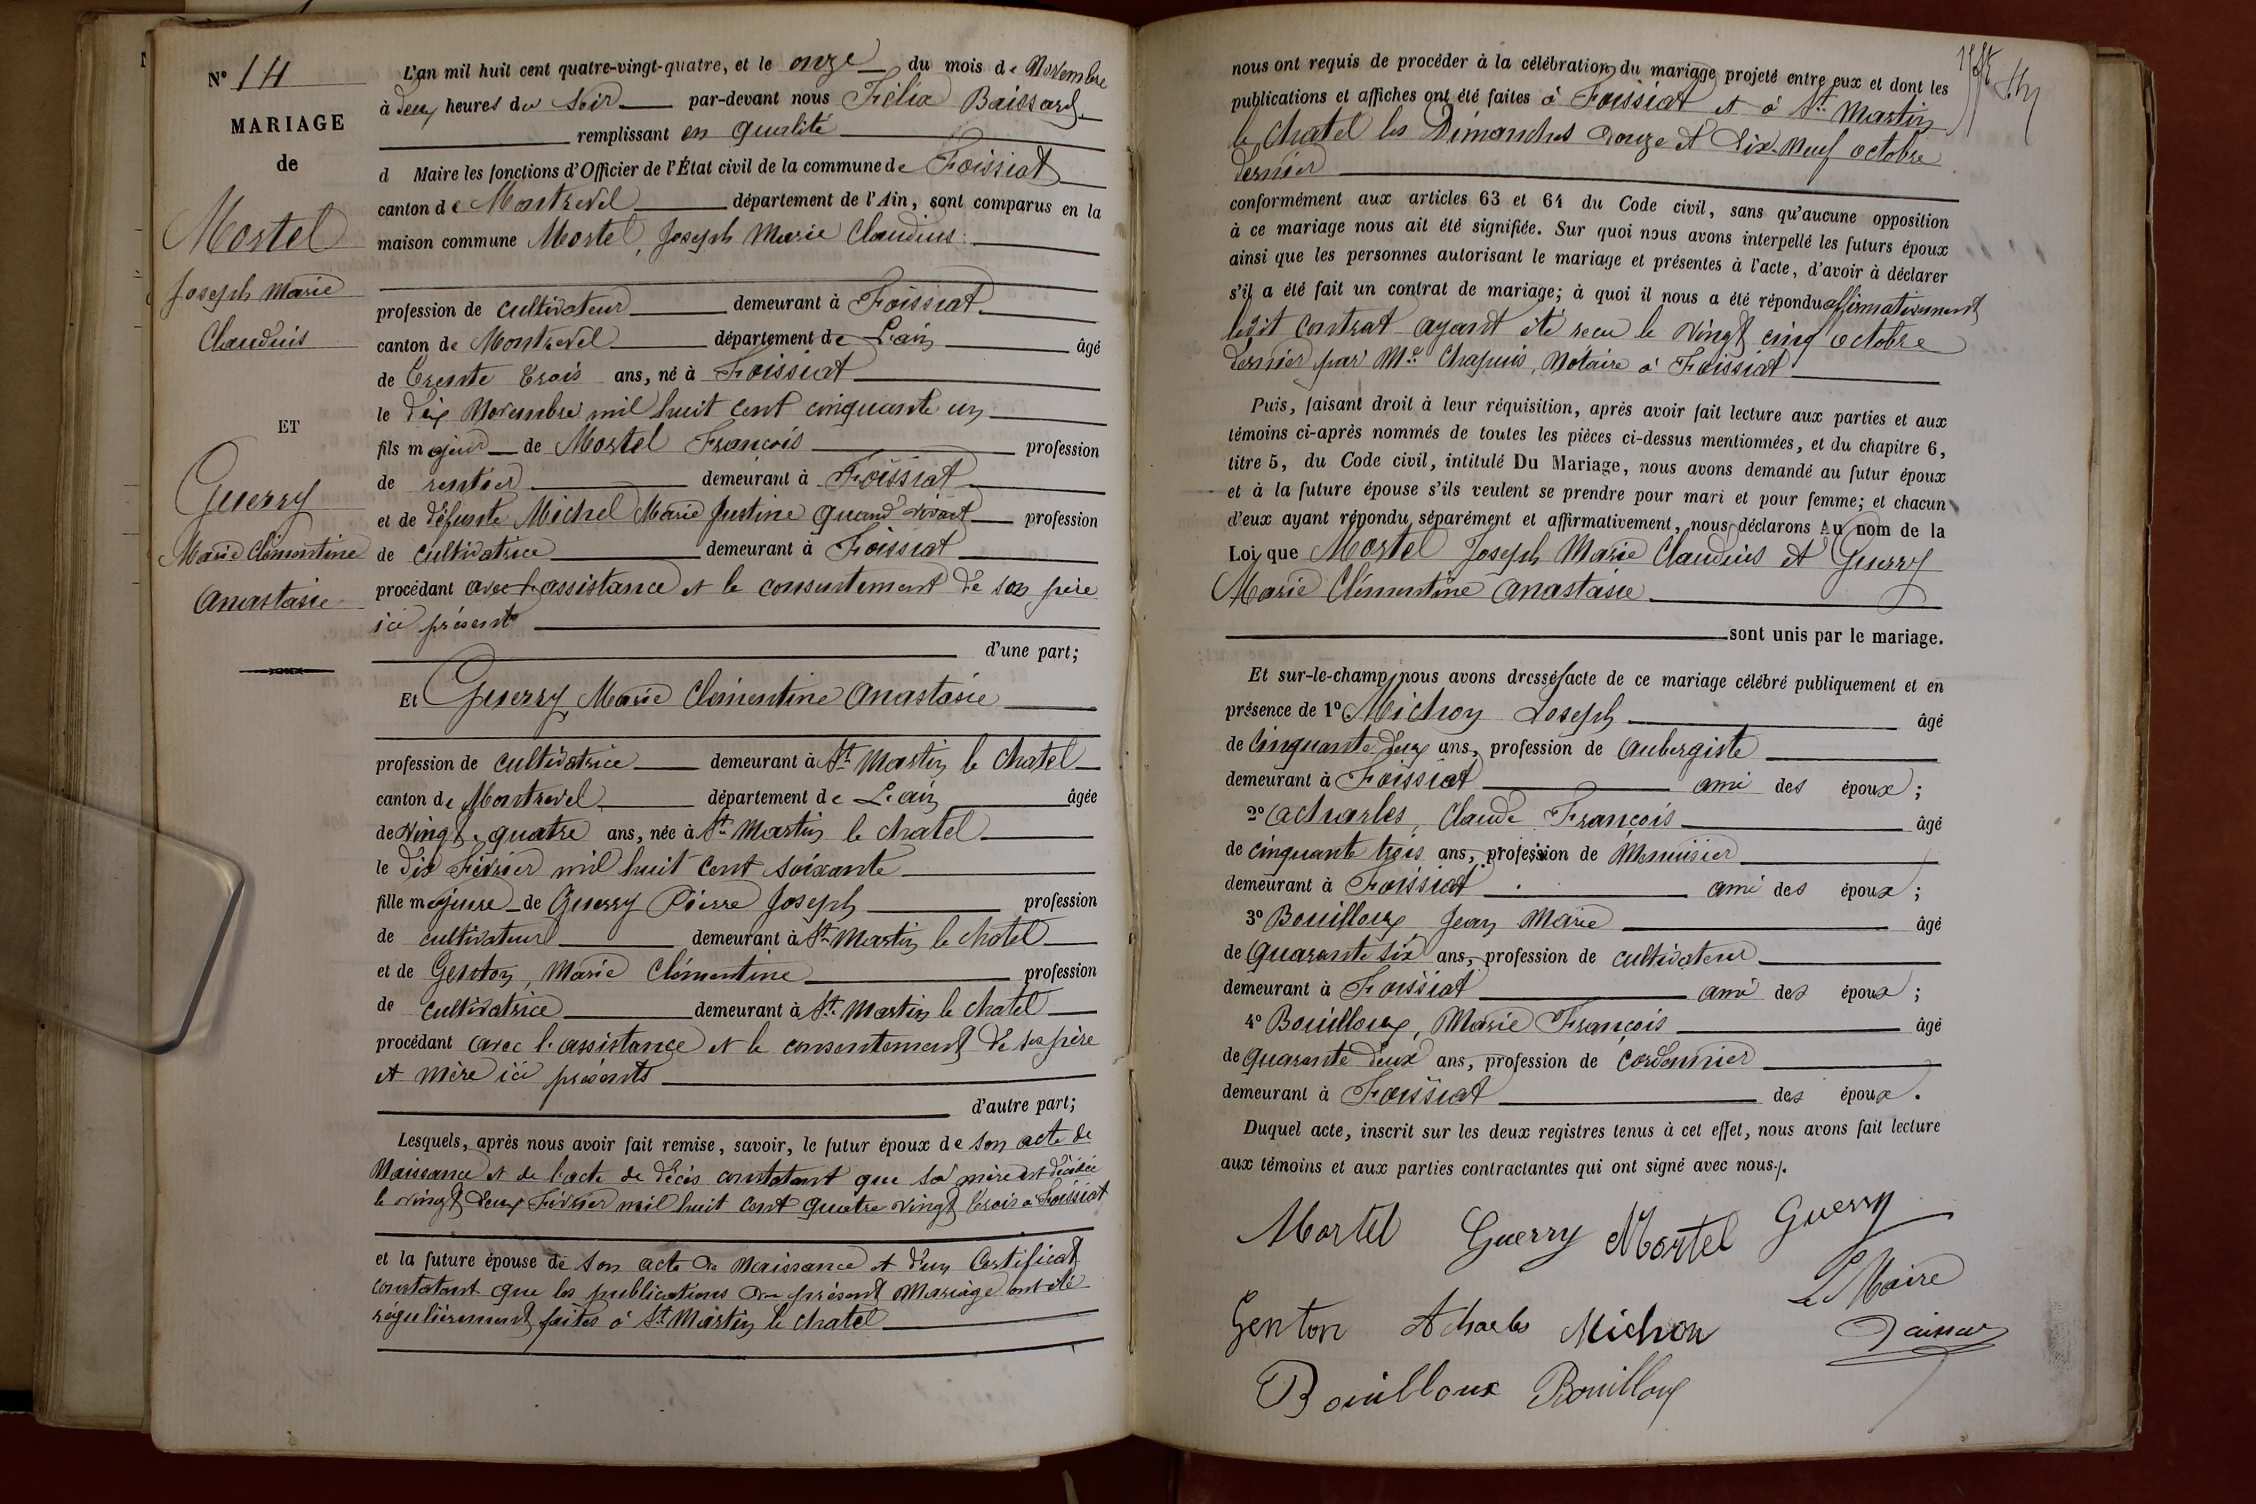 N° 14
MARIAGE
de
Mortel
Joseph Marie
Claudius
ET
Guerry
Marie Clémentine
Anastasie
L'an mil huit cent quatre-vingt-quatre, et le onze du mois de Novembre
à deux heures du soir par-devant nous Félix
remplissant en qualité
d Maire les fonctions d'Officier de l'État civil de la commune de Foissiat
canton de Montrevel département de l'Ain, sont comparus en la
maison commune Mortel, Joseph Marie Claudius
profession de cultivateur demeurant à Foissiat
canton de Montrevel département de L'ain âgé
de trente trois ans, né à Foissiat
le dix Novembre mil huit cent cinquante un
fils majeur de Mortel François profession
de rentier demeurant à Foissiat
et de défunte Michel Marie Justine quand vivait profession
de cultivatrice demeurant à Foissiat
procédant avec l'assistance et le consentement de son père
ici présent
d'une part;
Et Guerry Marie Clémentine Anastasie
profession de cultivatrice demeurant à St Martin le chatel
canton de Montrevel département de L'ain âgée
de vingt quatre ans, née à St Martin le chatel
le dix Février mil huit cent soixante
fille majeure de Guerry Pierre Joseph profession
de cultivateur demeurant à St Martin le chatel
et de Genton, Marie Clémentine profession
de cultivatrice demeurant à St Martin le chatel
procédant avec l'assistance et le consentement de ses père
et mère ici présents
d'autre part;
Lesquels, après nous avoir fait remise, savoir, le futur époux de son acte de
Naissance et de l'acte de décès constatant que sa mère est décédée
le vingt deux Février mil huit cent quatre vingt trois à Foissiat
et la future épouse de son acte de Naissance et d'un Certificat
constatant que les publications du présent Mariage ont été
régulièrement faites à St Martin le chatel
nous ont requis de procéder à la célébration du mariage projeté entre eux et dont les
publications et affiches ont été faites à Foissiat et à St Martin
le chatel les Dimanches douze et dix-neuf octobre
dernier
conformément aux articles 63 et 64 du Code civil, sans qu'aucune opposition
à ce mariage nous ait été signifiée. Sur quoi nous avons interpellé les futurs époux
ainsi que les personnes autorisant le mariage et présentes à l'acte, d'avoir à déclarer
s'il a été fait un contrat de mariage; à quoi il nous a été répondu affirmativement
ledit contrat ayant été reçu le vingt cinq octobre
dernier par Me Chapuis, Notaire à Foissiat
Puis, faisant droit à leur réquisition, après avoir fait lecture aux parties et aux
témoins ci-après nommés de toutes les pièces ci-dessus mentionnées, et du chapitre 6,
titre 5, du Code civil, intitulé Du Mariage, nous avons demandé au futur époux
et à la future épouse s'ils veulent se prendre pour mari et pour femme; et chacun
d'eux ayant répondu séparément et affirmativement, nous déclarons Au nom de la
Loi que Mortel Joseph Marie Claudius et Guerry
Marie Clémentine Anastasie
sont unis par le mariage.
Et sur-le-champ nous avons dressé acte de ce mariage célébré publiquement et en
présence de 1° Michon Joseph âgé
de cinquante deux ans, profession de aubergiste
demeurant à Foissiat ami des époux;
2° Acharles, Claude François âgé
de cinquante trois ans, profession de Menuisier
demeurant à Foissiat ami des époux;
3° Bouilloux Jean Marie âgé
de quarante six ans, profession de cultivateur
demeurant à Foissiat ami des époux;
4° Bouilloux, Marie François âgé
de quarante deux ans, profession de cordonnier
demeurant à Foissiat des époux.
Duquel acte, inscrit sur les deux registres tenus à cet effet, nous avons fait lecture
aux témoins et aux parties contractantes qui ont signé avec nous.
Mortel Guerry Mortel Guerry
Le Maire
Genton Acharles Michon
Bouilloux Bouilloux